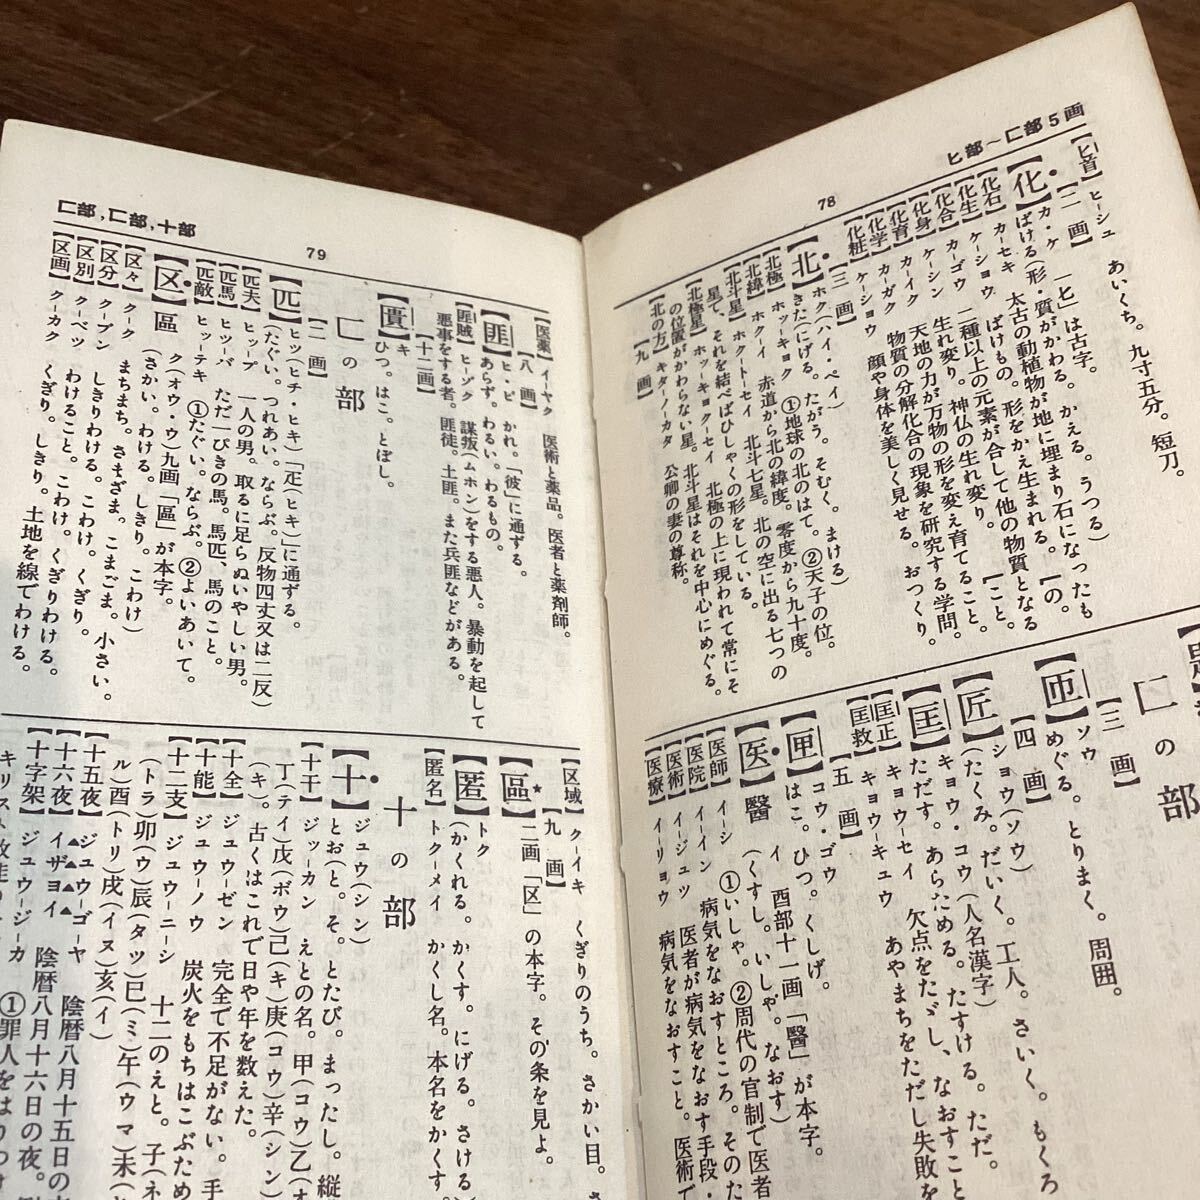 ヒ部～匚部5画
78
【匕首】 ヒーシュ あいくち。九寸五分。短刀。
【二 画】
【化】 カ・ケ 「七」は古字。
ばける(形・質がかわる。かえる。うつる)
【化石】 カーセキ 太古の動植物が地に埋まり石になったも
【化生】 ケーショウ ばけもの。形をかえ生まれる。【の。
【化合】 カーゴウ 二種以上の元素が合して他の物質となる
【化身】 ケーシン 生れ変り。神仏の生れ変り。【こと。
【化育】 カーイク 天地の力が万物の形を変え育てること。
【化学】 カーガク 物質の分解化合の現象を研究する学問。
【化粧】 ケーショウ 顔や身体を美しく見せる。おつくり。
【三 画】
【北】 ホク(ハイ・ベイ)
きた(にげる。たがう。そむく。まける)
【北極】 ホッーキョク ①地球の北のはて。②天子の位。
【北緯】 ホクーイ 赤道から北の緯度。零度から九十度。
【北斗星】 ホクートーセイ 北斗七星。北の空に出る七つの
星で、それを結べばひしゃくの形をしている。
【北極星】 ホッーキョクーセイ 北極の上に現われて常にそ
の位置がかわらない星。北斗星はそれを中心にめぐる。
【北の方】 キターノーカタ 公卿の妻の尊称。
【九 画】
匚の部
【三 画】
【匝】 ソウ
めぐる。とりまく。周囲。
【四 画】
【匠】 ショウ(ソウ)
(たくみ。だいく。工人。さいく。もくろ
【匡】 キョウ・コウ(人名漢字)
ただす。あらためる。たすける。ただ。
【匡正】 キョウーセイ 欠点をただし、なおすこと
【匡救】 キョウーキュウ あやまちをただし失敗を
【五 画】
【匣】 コウ・ゴウ
はこ。ひつ。くしげ。
【医】 醫 イ 酉部十一画「醫」が本字。
(くすし。いしゃ。なおす)
【医師】 イーシ ①いしゃ。②周代の官制で医者
【医院】 イーイン 病気をなおすところ。そのた
【医術】 イージュツ 医者が病気をなおす手段・
【医療】 イーリョウ 病気をなおすこと。医術で
匚部,匸部,十部
79
【医薬】 イーヤク 医術と薬品。医者と薬剤師。
【八 画】
【匪】 ヒ・ビ かれ。「彼」に通ずる。
あらず。わるい。わるもの。
【匪賊】 ヒーゾク 謀叛(ムホン)をする悪人。暴動を起して
悪事をする者。匪徒。土匪。また兵匪などがある。
【十二画】
【匱】 キ
ひつ。はこ。とぼし。
匸の部
【二 画】
【匹】 ヒツ(ヒチ・ヒキ)「疋(ヒキ)に通ずる。
(たぐい。つれあい。ならぶ。反物四丈又は二反)
【匹夫】 ヒッープ 一人の男。取るに足らぬいやしい男。
【匹馬】 ヒッーバ ただ一ぴきの馬。馬匹、馬のこと。
【匹敵】 ヒッーテキ ①たぐい。ならぶ。②よいあいて。
【区】 區 ク(オウ・ウ)九画「區」が本字。
(さかい。わける。しきり。こわけ)
【区々】 クーク まちまち。さまざま。こまごま。小さい。
【区分】 クーブン しきりわける。こわけ。くぎり。
【区別】 クーベツ わけること。こわけ。くぎりわける。
【区画】 クーカク くぎり。しきり。土地を線でわける。
【区域】 クーイキ くぎりのうち。さかい目。さ
【九 画】
【區】 二画「区」の本字。その条を見よ。
【匿】 トク
(かくれる。かくす。にげる。さける)
【匿名】 トクーメイ かくし名。本名をかくす。
十の部
【十】 ジュウ(シン)
とお(と。そ。とたび。まったし。縦
【十干】 ジッーカン えとの名。甲(コウ)乙(オ
丁(テイ)戊(ボウ)己(キ)庚(コウ)辛(シン)
(キ)。古くはこれで日や年を数えた。
【十全】 ジュウーゼン 完全で不足がない。手
【十能】 ジュウーノウ 炭火をもちはこぶため
【十二支】 ジュウーニーシ 十二のえと。子(ネ
(トラ)卯(ウ)辰(タツ)巳(ミ)午(ウマ)未(
ル)酉(トリ)戌(イヌ)亥(イ)
【十五夜】 ジュウーゴーヤ 陰暦八月十五日の
【十六夜】 イザヨイ 陰暦八月十六日の夜。
【十字架】 ジュウージーカ ①罪人をはりつけ